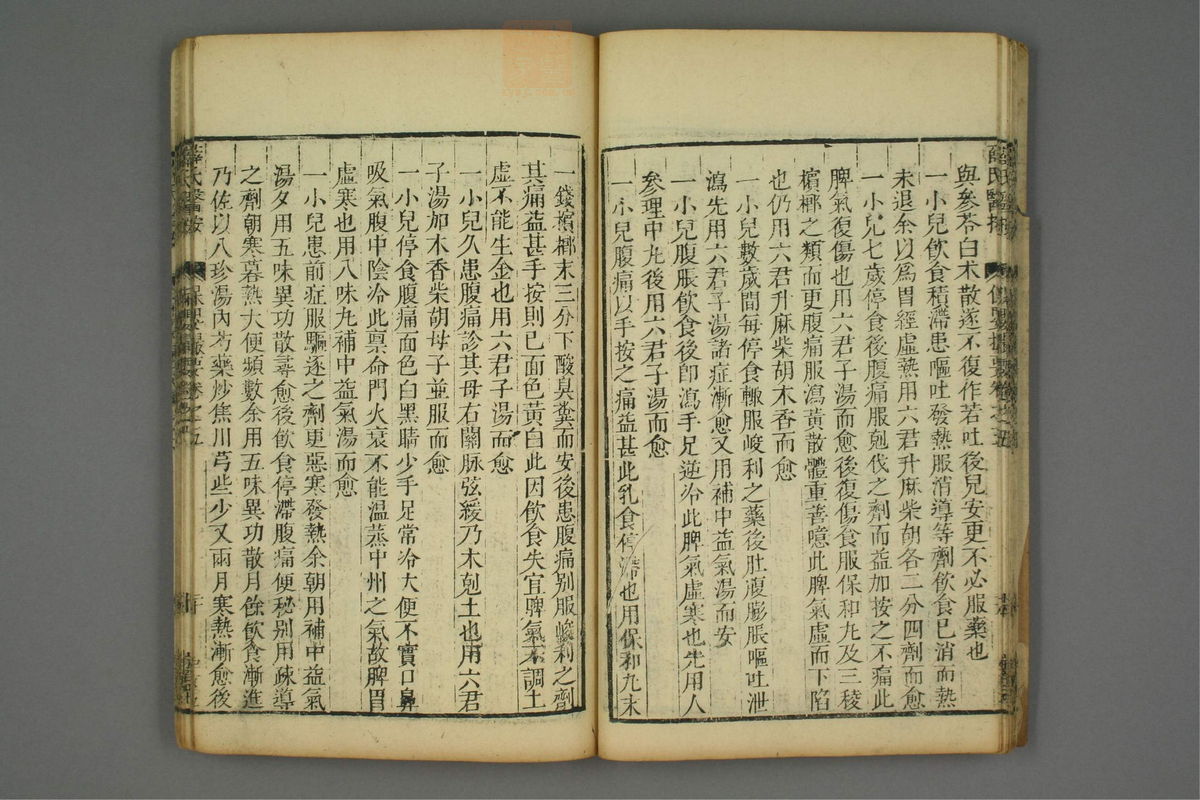 與參苓白朮散遂不復作若吐後兒安更不必服藥也
一小兒飲食積滯患嘔吐發熱服消導等劑飲食已消而熱
未退余以為胃經虛熱用六君升麻柴胡各二分四劑而愈
一小兒七歲停食後腹痛服剋伐之劑而益加按之不痛此
脾氣復傷也用六君子湯而愈後復傷食服保和丸及三稜
檳榔之類而更腹痛服瀉黃散體重善噫此脾氣虛而下陷
也仍用六君升麻柴胡木香而愈
一小兒數歲間每停食輙服峻利之藥後肚腹膨脹嘔吐泄
瀉先用六君子湯諸症漸愈又用補中益氣湯而安
一小兒腹脹飲食後卽瀉手足逆冷此脾氣虛寒也先用人
參理中丸後用六君子湯而愈
一小兒腹痛以手按之痛益甚此乳食停滯也用保和丸末
一錢檳榔末三分下酸臭糞而安後患腹痛别服峻利之劑
其痛益甚手按則已面色黃白此因飲食失宜脾氣不調土
虛不能生金也用六君子湯而愈
一小兒久患腹痛診其母右關脉弦緩乃木剋土也用六君
子湯加木香柴胡母子並服而愈
一小兒停食腹痛面色白黑睛少手足常冷大便不實口鼻
吸氣腹中陰冷此禀命門火衰不能温蒸中州之氣故脾胃
虛寒也用八味丸補中益氣湯而愈
一小兒患前症服驅逐之劑更惡寒發熱余朝用補中益氣
湯夕用五味異功散尋愈後飲食停滯腹痛便秘别用疎導
之劑朝寒暮熱大便頻數余用五味異功散月餘飲食漸進
乃佐以八珍湯內芍藥炒焦川芎些少又兩月寒熱漸愈後
薛氏醫按
保嬰撮要卷之五